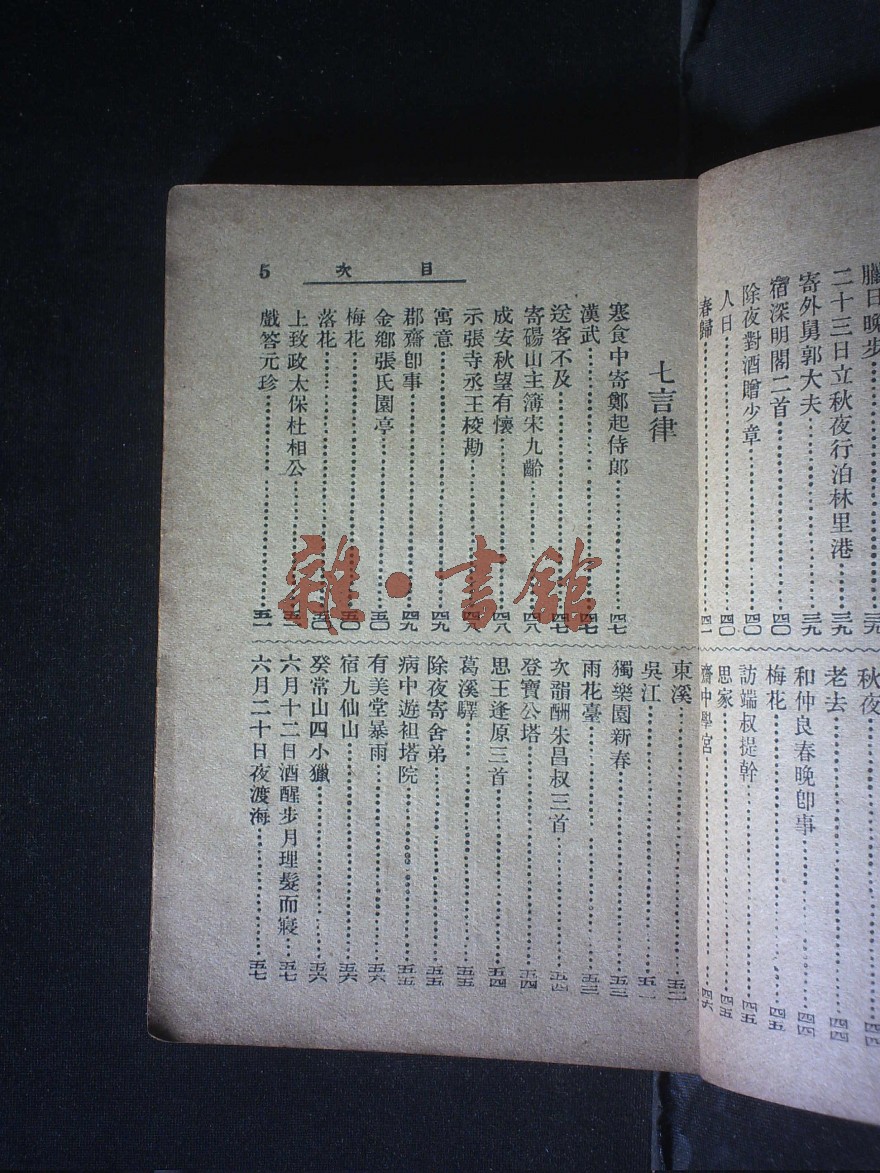 臘日晚步
二十三日立秋夜行泊林里港……三九
寄外舅郭大夫……三九
宿深明閣二首……四〇
除夜對酒贈少章……四〇
人日……四〇
春歸……四一
秋夜……四四
老去……四四
和仲良春晚卽事……四四
梅花……四五
訪端叔提幹……四五
思家……四五
齋中學宮……四六
目次 5
七言律
寒食中寄鄭起侍郞……四七
漢武……四七
送客不及……四七
寄碭山主簿宋九齡……四八
成安秋望有懷……四八
示張寺丞王校勘……四八
寓意……四九
郡齋卽事……四九
金鄉張氏園亭……五〇
梅花……五〇
落花……五〇
上致政太保杜相公……五一
戲答元珍……五一
東溪……五二
吳江……五二
獨樂園新春……五三
雨花臺……五三
次韻酬朱昌叔三首……五四
登寶公塔……五四
思王逢原三首……五四
葛溪驛……五五
除夜寄舍弟……五五
病中遊祖塔院……五五
有美堂暴雨……五六
宿九仙山……五六
癸常山四小獵……五六
六月十二日酒醒步月理髮而寢……五七
六月二十日夜渡海……五七
雜·書館